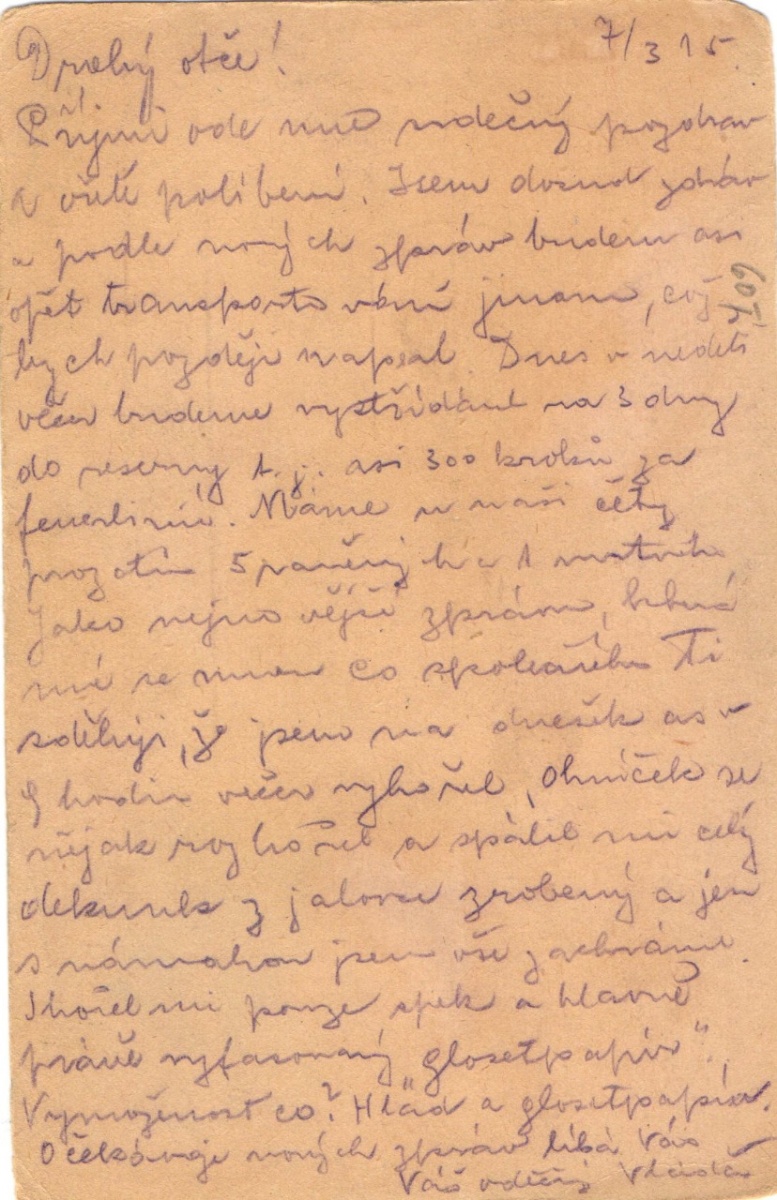 Drahý otče! 7/3 15.
Přijmi ode mne srdečný pozdrav
a vřelé políbení. Jsem dosud zdráv
a podle nových zpráv budem asi
opět transportováni jinam, což
bych později napsal. Dnes v neděli
večer budeme vystřídáni na 3 dny
do reservy t. j. asi 300 kroků za
feuerlinii. Máme u naší čéty
prozatím 5 raněných a 1 mrtvého
Jako nejnovější zprávu,
mé se mnou co Ti
sděluji, že jsem na dnešek as v
9 hodin večer vyhořel, Ohníček se
nějak rozhořel a spálil mi celý
dekunk z jalovce zrobený a jen
s námahou jsem vše zachránil.
Shořel mi pouze špek a hlavně
právě vyfasovaný "glosetpapír".
Vymoženost co? Hlad a glosetpapír.
Očekávaje nových zpráv líbá Vás
Váš vděčný Vláďa
607